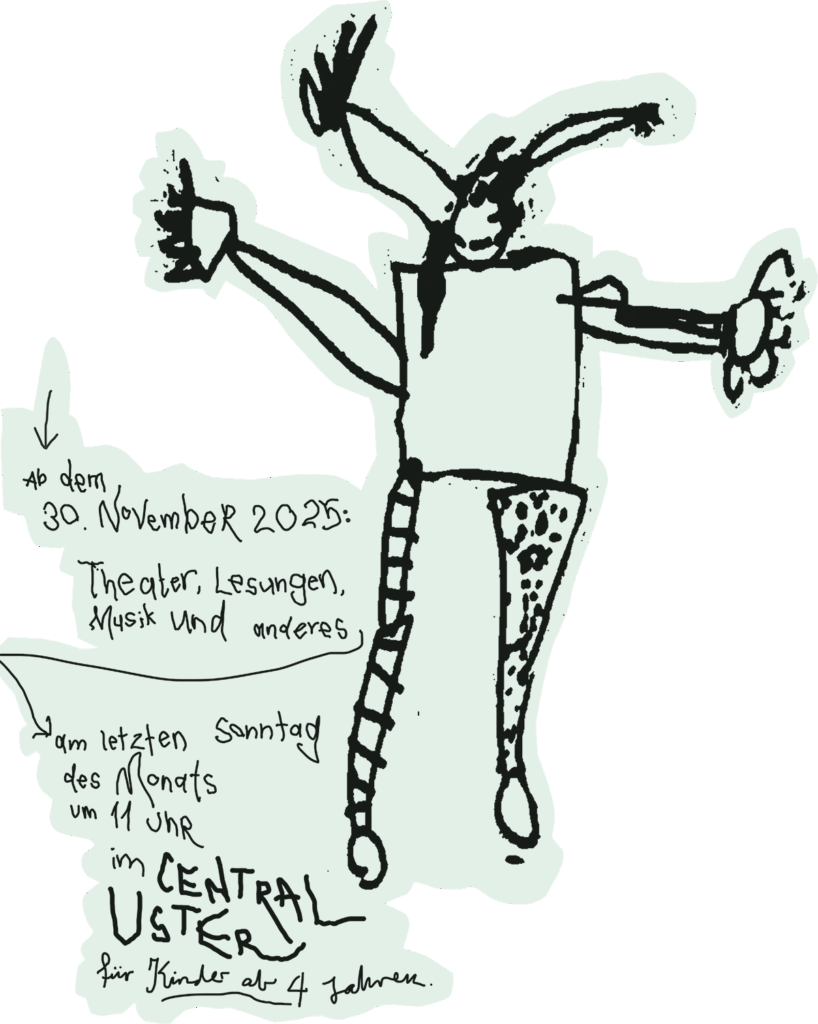 Ab dem
30. November 2025:
Theater, Lesungen,
Musik und anderes
am letzten Sonntag
des Monats
um 11 Uhr
im CENTRAL
USTER
für Kinder ab 4 Jahren.